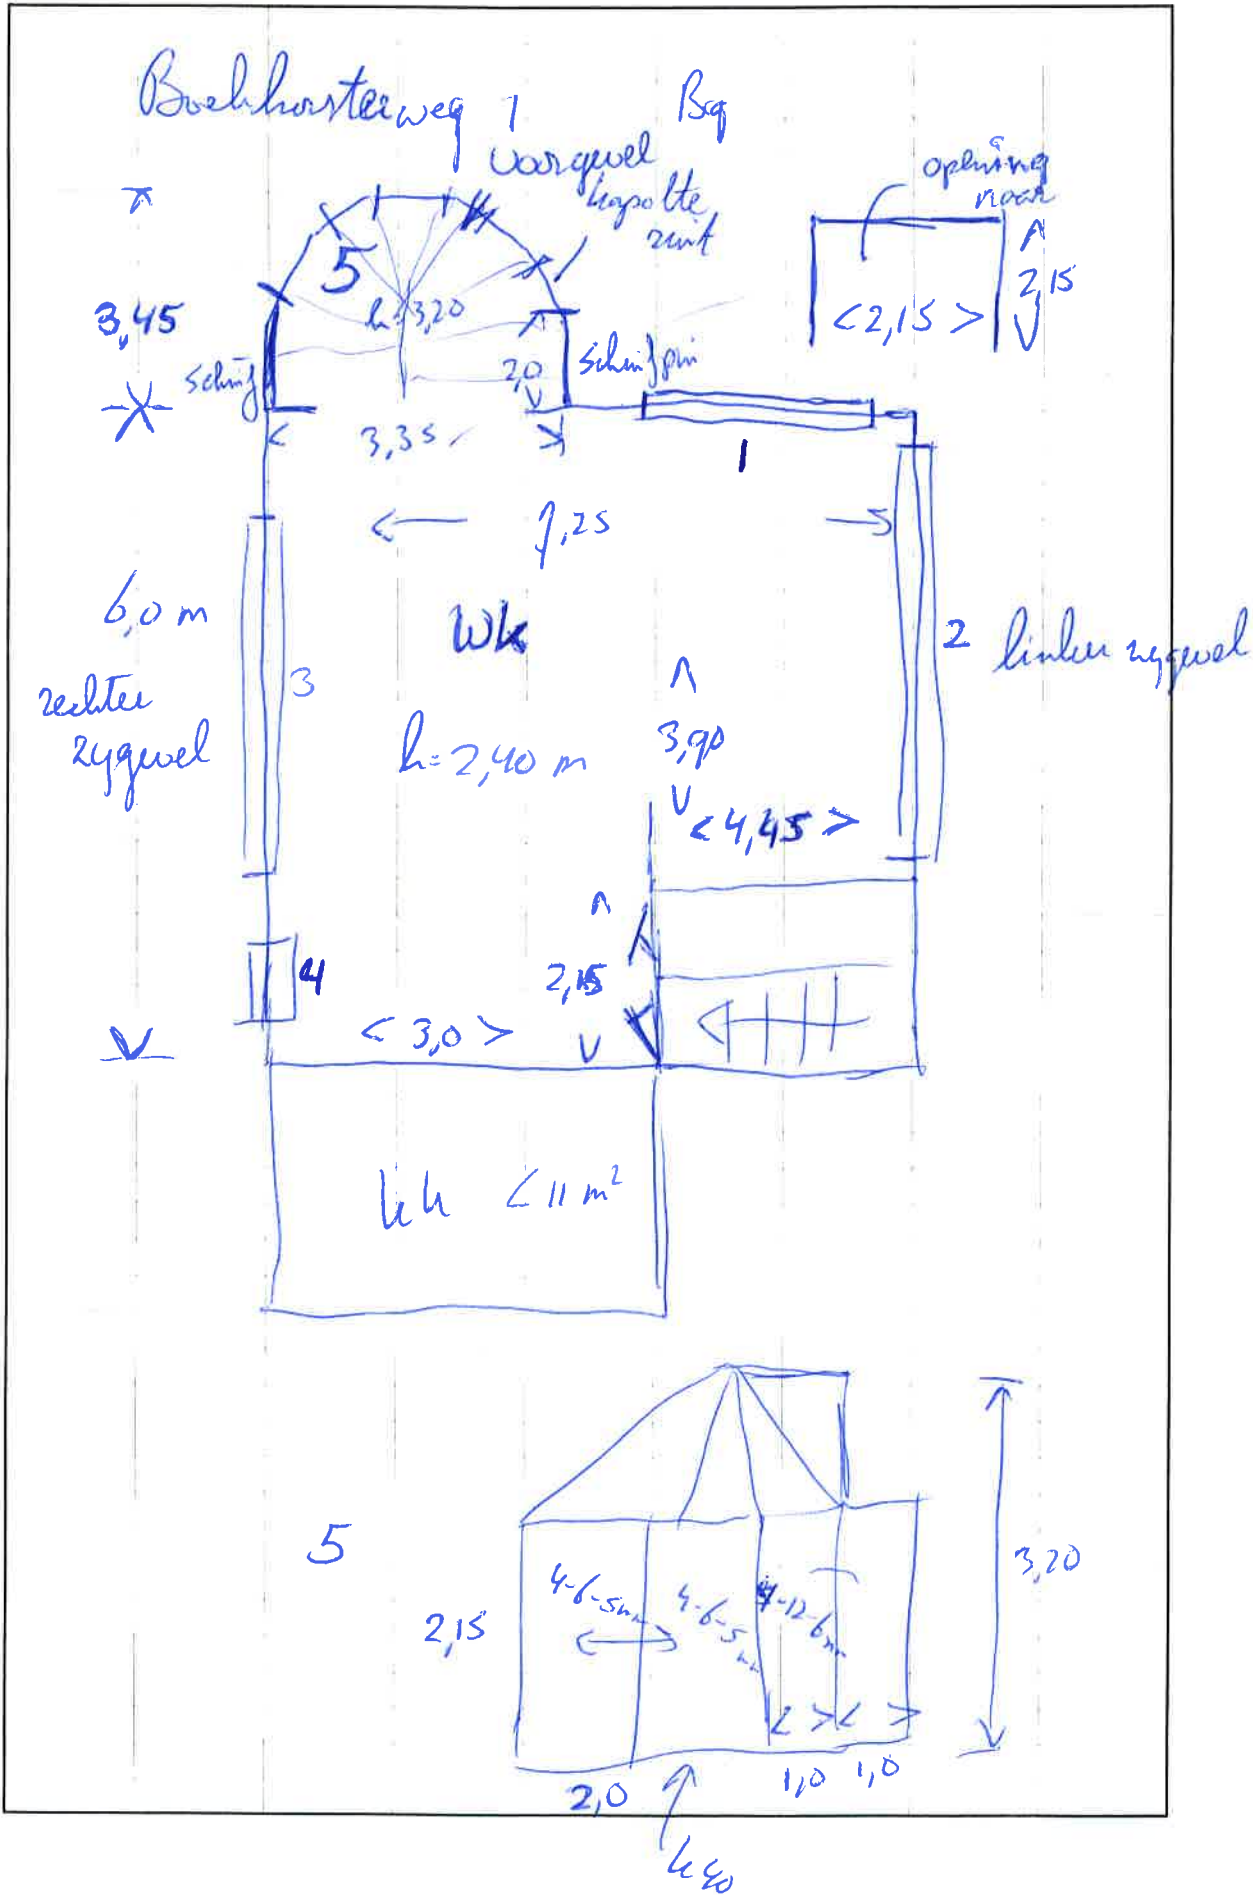 Boekhorsterweg 1 Bg
voorgevel
kapotte
ruit
opening
naar
5
h=3,20
3,45
<2,15>
2,15
schuif
2,0
schuifpui
3,35
1
7,25
6,0 m
rechter
zygevel
3
WK
h=2,40 m
2 linker zygevel
3,90
<4,45>
4
2,15
<3,0>
kk <11 m²
5
2,15
4-6-5mm
4-6-5mm
4-12-6mm
3,20
2,0
1,0 1,0